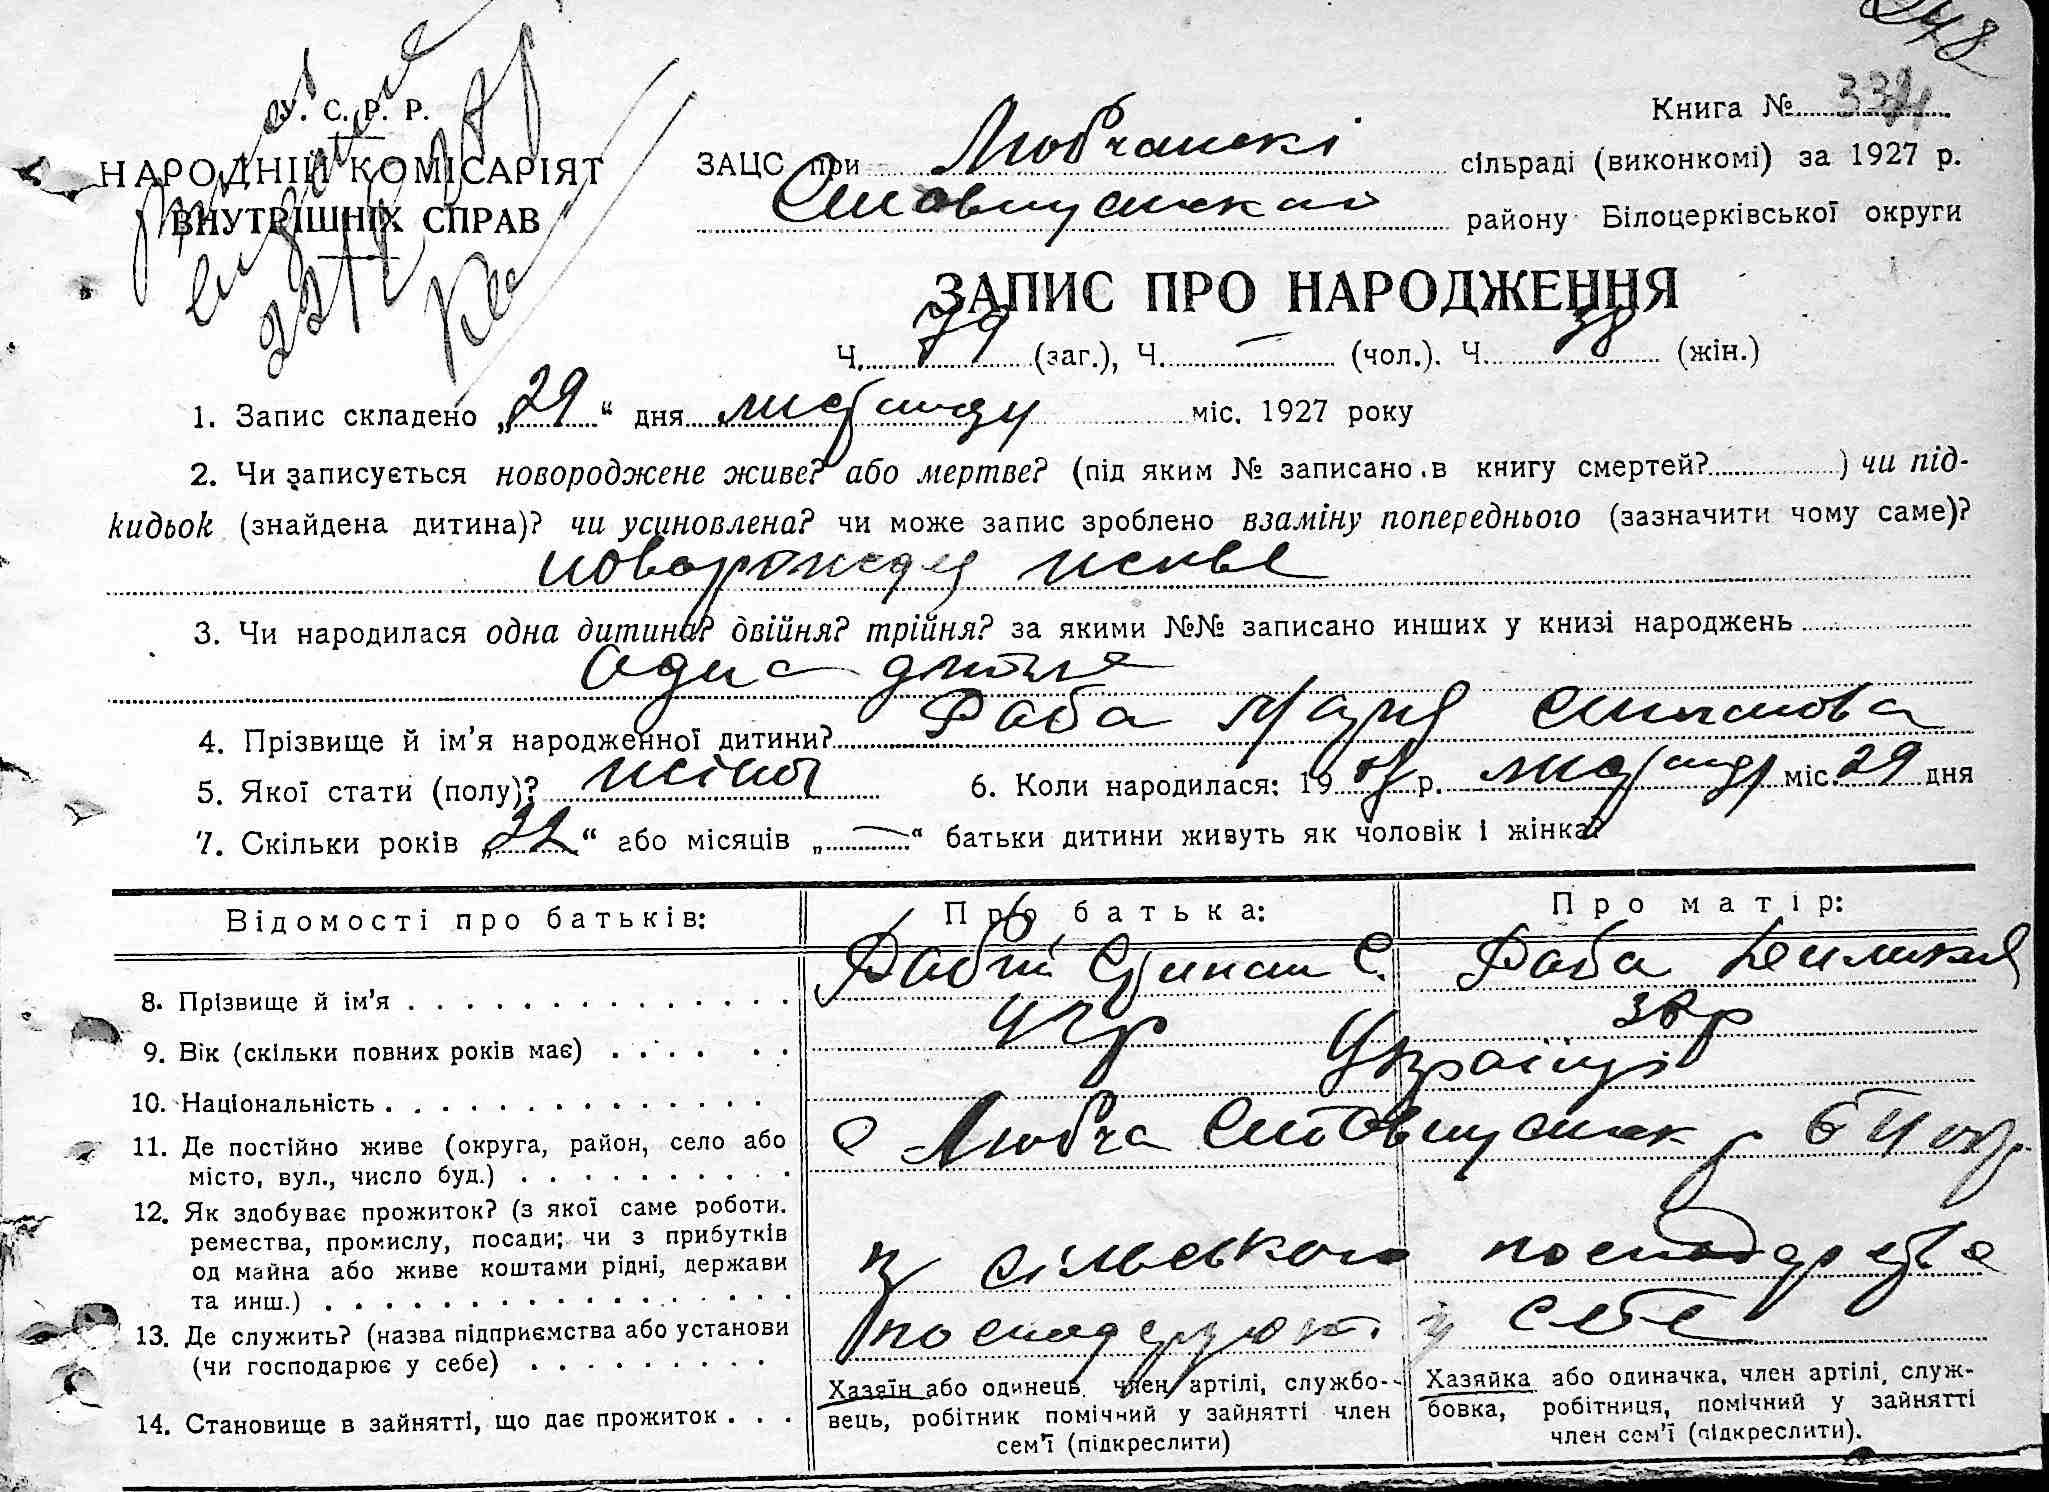 248
У. С. Р. Р.
НАРОДНІЙ КОМІСАРІЯТ
ВНУТРІШНІХ СПРАВ
Книга №
ЗАЦС при Любчанскі сільраді (виконкомі) за 1927 р.
району Білоцерківської округи
ЗАПИС ПРО НАРОДЖЕННЯ
Ч. 79 (заг.), Ч. — (чол.). Ч. 38 (жін.)
1. Запис складено „29“ дня листопаду міс. 1927 року
2. Чи записується новороджене живе? або мертве? (під яким № записано в книгу смертей?) чи під-
кидьок (знайдена дитина)? чи усиновлена? чи може запис зроблено взаміну попереднього (зазначити чому саме)?
живе
3. Чи народилася одна дитина? двійня? трійня? за якими №№ записано инших у книзі народжень
одна дитина
4. Прізвище й ім’я народженної дитини? Раба Марія
5. Якої стати (полу)? жіноч 6. Коли народилася: 1927 р. листопаду міс. 29 дня
7. Скільки років „22“ або місяців „—“ батьки дитини живуть як чоловік і жінка?
Відомості про батьків: Про батька: Про матір:
8. Прізвище й ім’я Рабій С. Раба
9. Вік (скільки повних років має)
10. Національність Українці
11. Де постійно живе (округа, район, село або
місто, вул., число буд.) с Любча р БЦ окр.
12. Як здобуває прожиток? (з якої саме роботи.
ремества, промислу, посади; чи з прибутків
од майна або живе коштами рідні, держави
та инш.) з сільського господарства
13. Де служить? (назва підприємства або установи
(чи господарює у себе) господарюють у себе
14. Становище в зайнятті, що дає прожиток
Хазяїн або одинець, член артілі, службо-
вець, робітник помічний у зайнятті член
сем’ї (підкреслити)
Хазяйка або одиначка, член артілі, служ-
бовка, робітниця, помічний у зайнятті
член сем’ї (підкреслити).